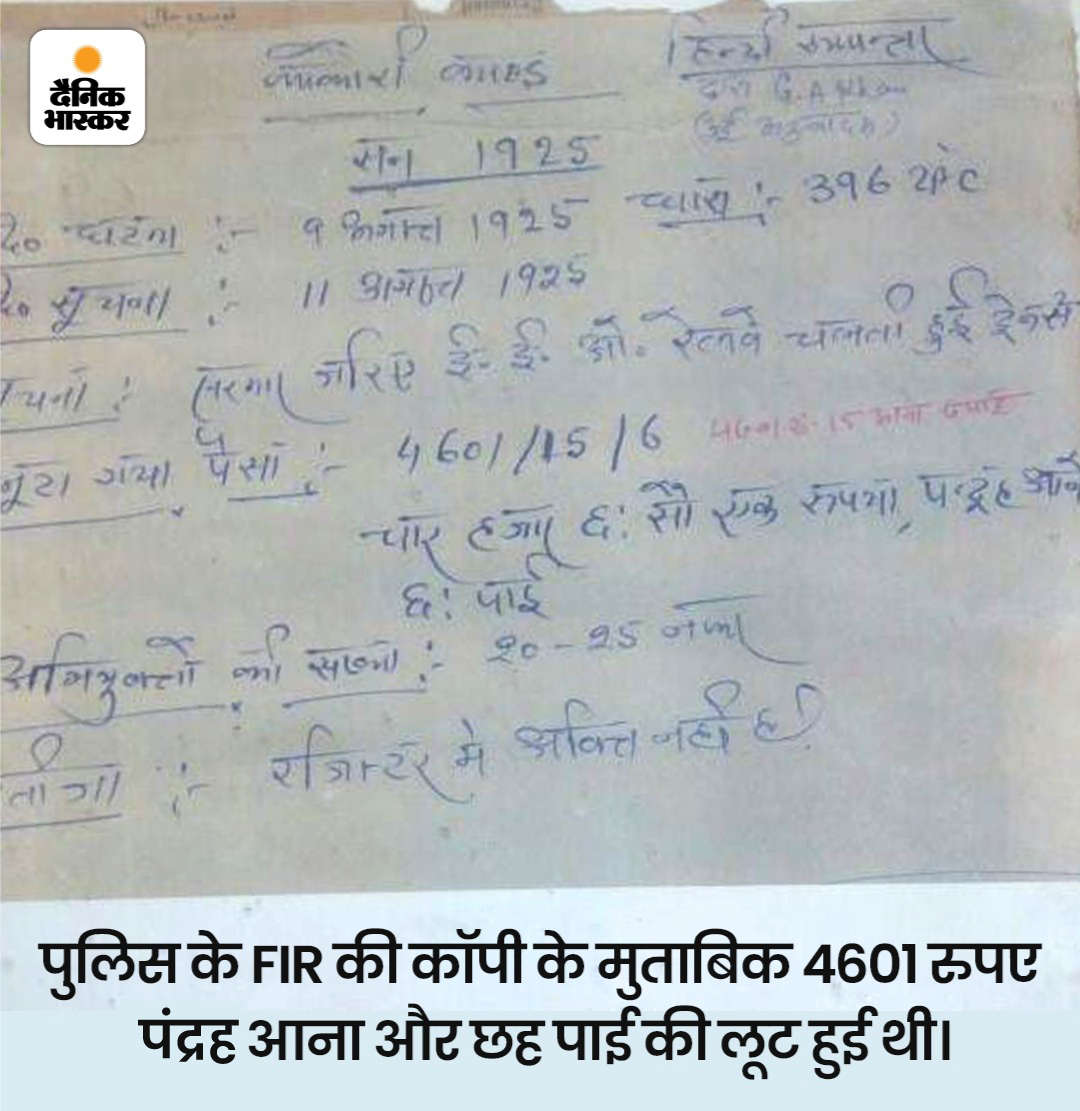 दैनिक
भास्कर
काकोरी काण्ड
हिन्दी रूपान्तर
द्वारा G.A Khan
सन 1925
दि० घटना :- 9 अगस्त 1925 धारा :- 396 IPC
दि० सूचना :- 11 अगस्त 1925
जरिए ई. ई. ओ. रेलवे चलती हुई ट्रेन से
लूटा गया पैसा :- 4601/15/6
चार हजार छ: सौ एक रुपया, पन्द्रह आने
छ: पाई
अभियुक्तों की संख्या :- २०-२५ नफर
रजिस्टर मे अंकित नहीं है।
पुलिस के FIR की कॉपी के मुताबिक 4601 रुपए
पंद्रह आना और छह पाई की लूट हुई थी।